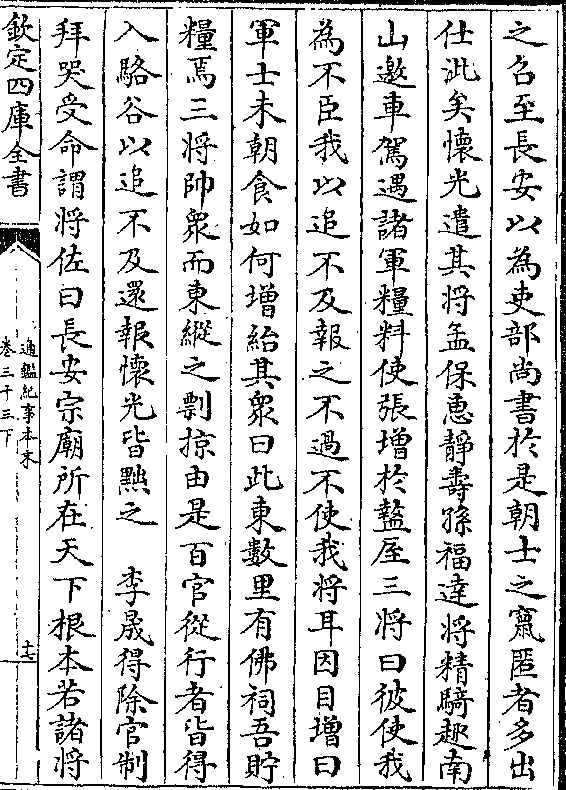 之召至長安以為吏部尚書於是朝士之竄匿者多出
仕泚矣懷光遣其將孟保惠靜壽孫福達將精騎趣南
山邀車駕遇諸軍糧料使張增於盩厔三將曰彼使我
為不臣我以追不及報之不過不使我將耳因目增曰
軍士未朝食如何增紿其衆曰此東數里有佛祠吾貯
糧焉三將帥衆而東縱之剽掠由是百官從行者皆得
入駱谷以追不及還報懷光皆黜之　李晟得除官制
拜哭受命謂將佐曰長安宗廟所在天下根本若諸將
欽定四庫全書
通鑑紀事本末
卷三十三下